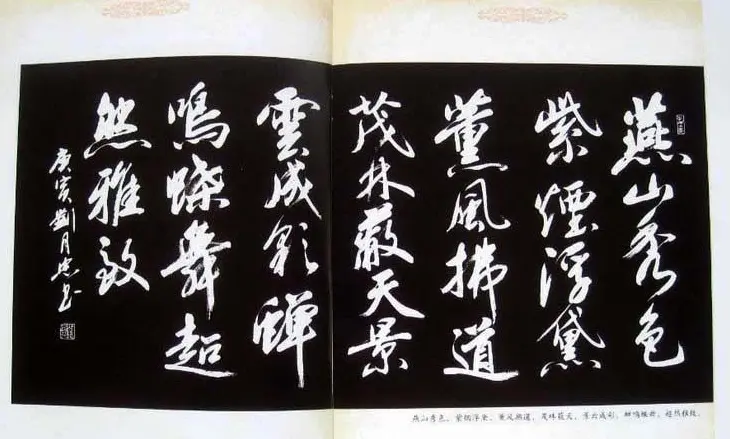 燕山秀色
紫煙浮黛
薰風拂道
茂林蔽天景
雲成彩蟬
鳴蝶舞超
然雅致
庚寅劉月忠书
燕山秀色，紫烟浮，薰风拂道，茂林蔽天，景云成彩，蝉鸣蝶舞，超然雅致。